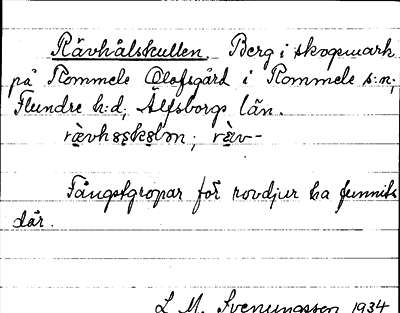 Rävhålskullen. Berg i skogsmark
på Rommele Olofsgård i Rommele s:n,
Flundre h:d, Älfsborgs län.
Fångstgropar för rovdjur ha funnits
där.
L. M. Svenungsson 1934